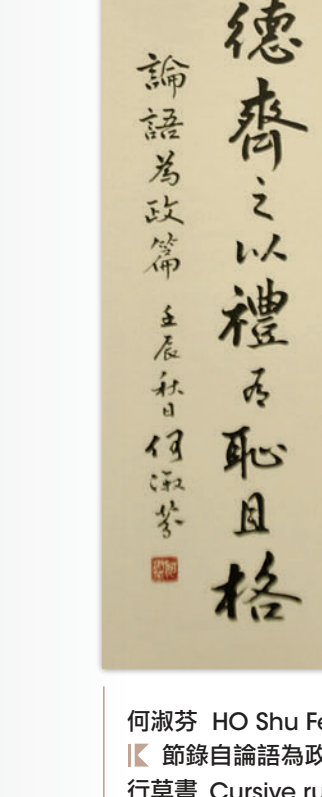 德齊之以禮有恥且格
論語為政篇 壬辰秋日何淑芬
何淑芬 HO Shu Fe
節錄自論語為政
行草書 Cursive ru